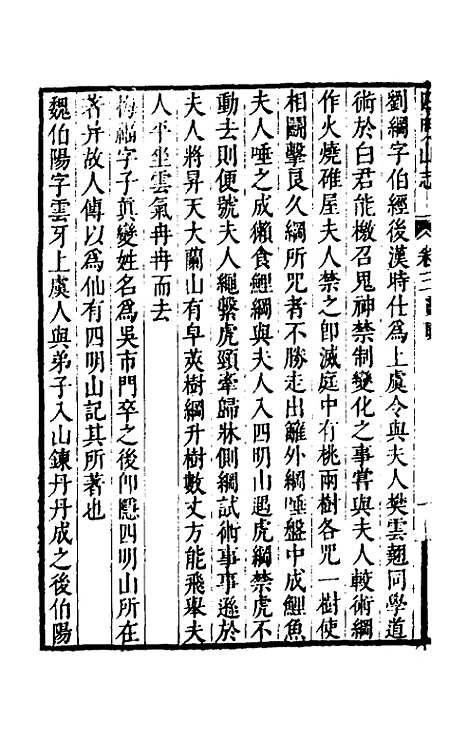 四明山志 卷三
劉綱字伯經後漢時仕爲上虞令與夫人樊雲翹同學道
術於白君能檄召鬼神禁制變化之事嘗與夫人較術綱
作火燒碓屋夫人禁之卽滅庭中有桃兩樹各咒一樹使
相鬭擊良久綱所咒者不勝走出籬外綱唾盤中成鯉魚
夫人唾之成獺食鯉綱與夫人入四明山遇虎綱禁虎不
動去則便號夫人繩繫虎頸牽歸牀側綱試術事事遜於
夫人將昇天大蘭山有皁莢樹綱升樹數丈方能飛舉夫
人平坐雲氣冉冉而去
梅福字子眞變姓名爲吳市門卒之後仰隱四明山所在
著丹故人傳以爲仙有四明山記其所著也
魏伯陽字雲牙上虞人與弟子入山鍊丹丹成之後伯陽